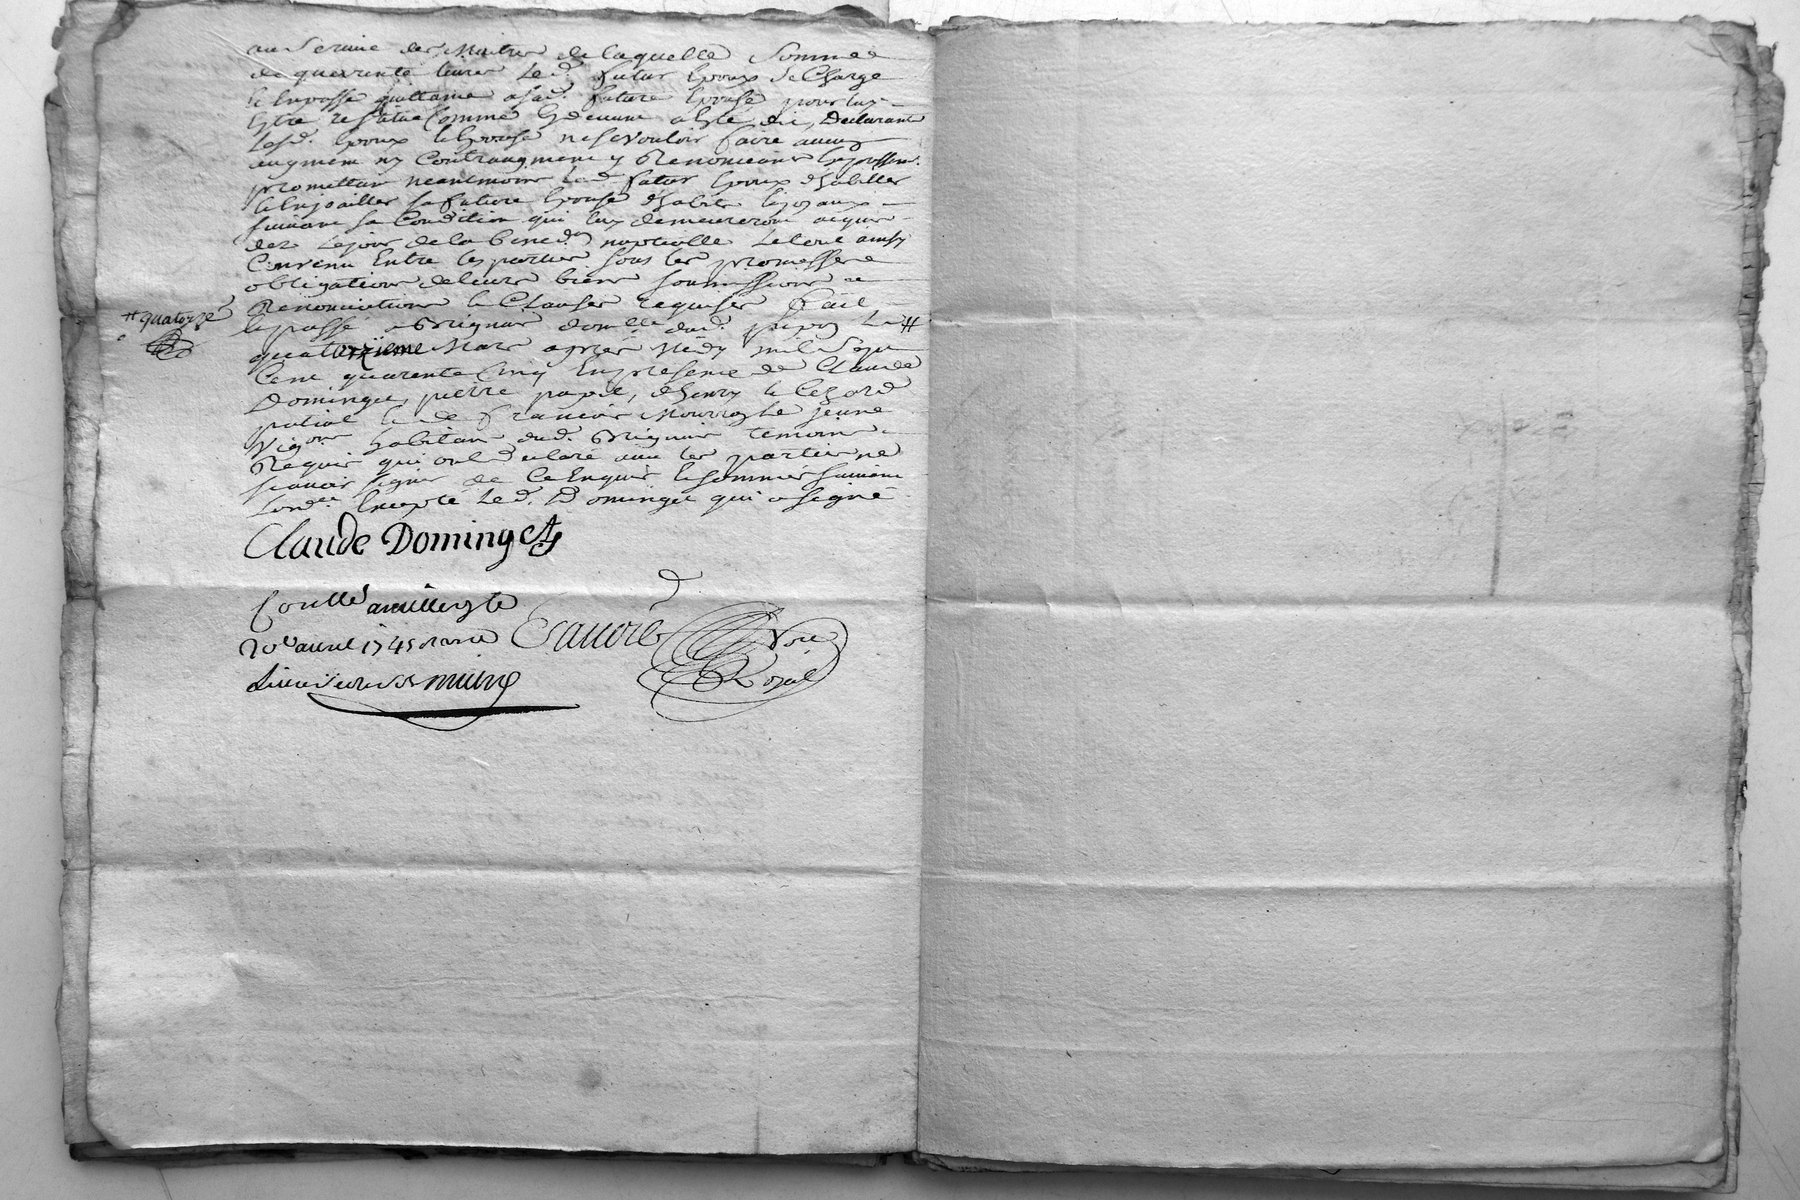 au Service des Maitres de laquelle Somme
de quarente livres Led. futur Epoux Se Charge
Et En passe quittance a sad. future Epouse pour luy
Estre restitué Comme Cy devant a Esté dit, Declarant
Lesd. Epoux Et Epouse ne se vouloir faire aucun
augment ny Contraugment y Renonceant Expressem.
promettant neantmoins Led. futur Epoux d'habiller
Et Enjoailler sa future Epouse d'habits Et joyaux
suivant sa Condition qui luy demeureront acquis
dez Le jour de la bened.on nuptialle Le tout ainsy
Convenu Entre les parties sous les promesses
obligations de leurs biens soumissions
Renonciations Et Clauses requises fait
# quatorze
Et passé a Brignais domille dud. papon Le #
quatorzieme Mars apres Midy mil Sept
Cent quarente Cinq En presence de Claude
Dominget, pierre papot,
de francois Le jeune
Vigon habitans dud. Brignais temoins
Requis qui ont declaré avec les parties ne
scavoir signer de Ce Enquis Et sommés suivant
Lord.ce Excepté Led. Dominget qui a signé
Claude Dominget
Conllé a
20e avril 1745
No.re
Royal